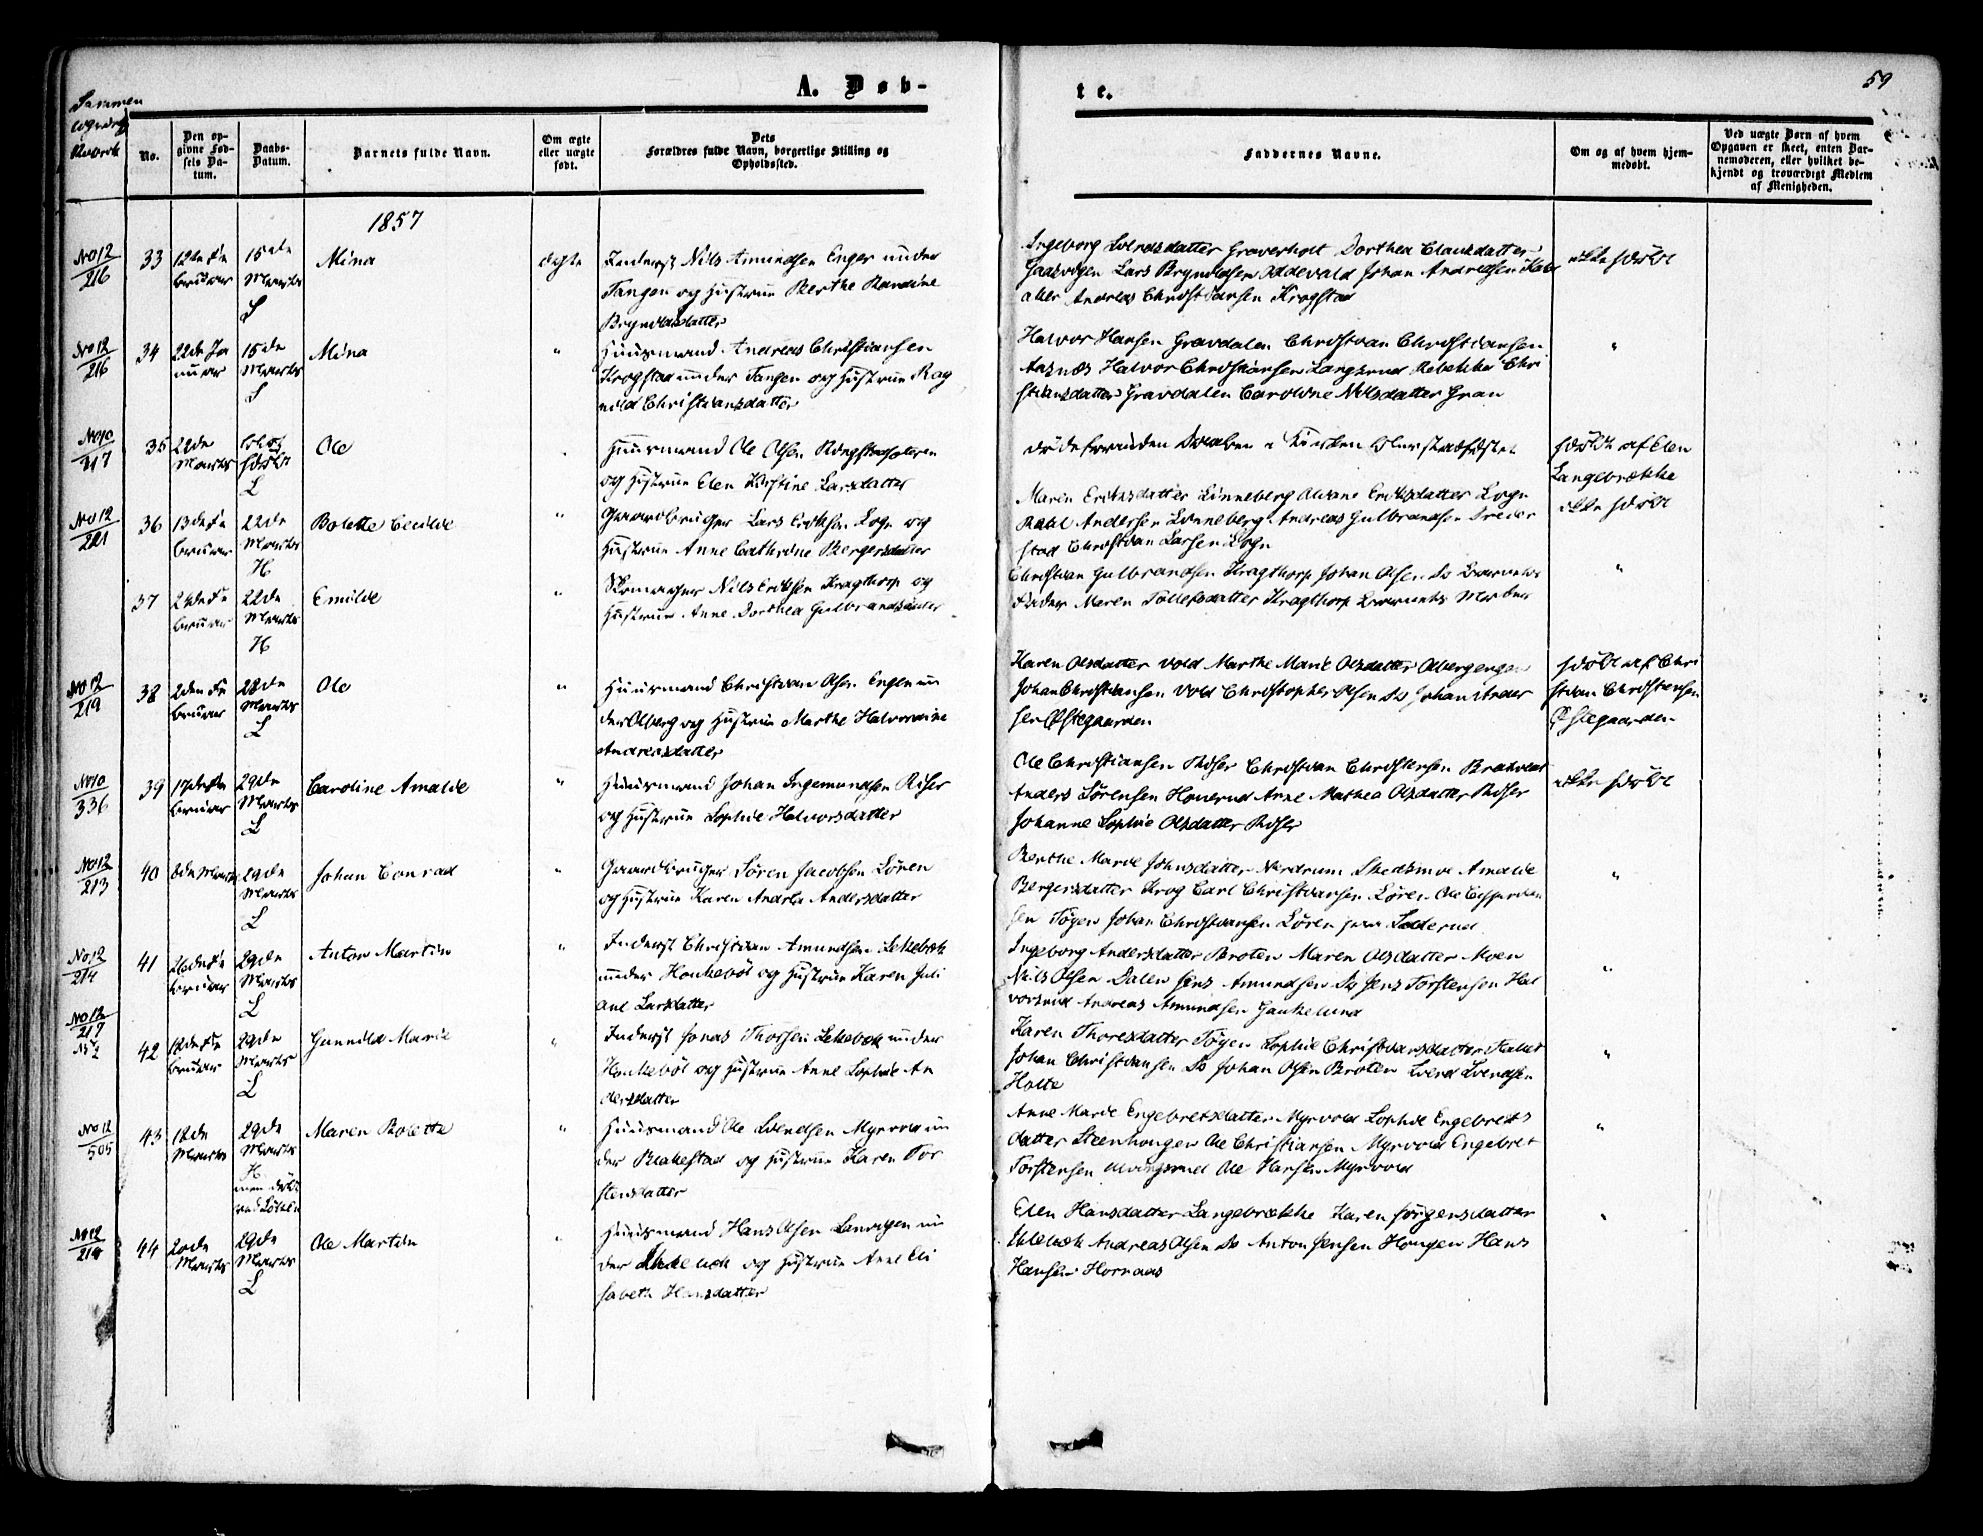 A. Døb-
te.
59
Sammen
No.
Den op-
givne Fød-
sels Da-
tum.
Daabs-
Datum.
Barnets fulde Navn.
Om ægte
eller uægte
født.
Dets
Forældres fulde Navn, borgerlige Stilling og
Opholdssted.
Faddernes Navne.
Om og af hvem hjem-
medøbt.
Ved uægte Børn af hvem
Opgaven er skeet, enten Bar-
nemoderen, eller hvilket be-
kjendt og troværdigt Medlem
af Menigheden.
1857
No 12
216
33
12te Fe
bruar
15de
Marts
Mina
ægte
Inderst Nils Amundsen Enger under
Tangen og Hustrue Berthe Karoline
Brynildsdatter
Ingeborg Svendsdatter Graverholt Dorthea Clausdatter
Lars Bryndlsen Oddevald Johan Andreasen
Andreas Christiansen Krogstad
ikke hjdøbt
No 12
216
34
22de Ja
nuar
15de
Marts
Mina
"
Huusmand Andreas Christiansen
Krogstad under Tangen og Hustrue Rag
nild Christiansdatter
Halvor Hansen Gravdalen Christian Christiansen
Aasnæs Halvor Christiansen Langerud Rebekka Chri
stiansdatter Gravdalen Caroline Nilsdatter Gran
"
No 10
317
35
22de
Marts
Ole
Huusmand Ole Olsen
og Hustrue Elen Kirstine Larsdatter
døde forinden Daaben i Kirken
hjdøbt af Elen
Langebrække
No 12
221
36
13de Fe
bruar
22de
Marts
H
Bolette Cecilie
"
Gaardbruger Lars Eriksen Logn og
Hustrue Anne Cathrine Bergersdatter
Maren Eriksdatter Linneberg Olvane Eriksdatter Logn
Andersen Linneberg Andreas Gulbrandsen
stad Christian Larsen Logn
ikke hjdøbt
37
22de
Marts
H
Emilie
"
Skomager Nils Eriksen Kragthorp og
Hustrue Anne Dorthea Gulbrandsdatter
Christian Gulbrandsen Kragthorp Johan Olsen Do Barnets
Fader Maren Tollefsdatter Kragthorp Barnets Moder
"
No 12
219
38
2den Fe
bruar
28de
Marts
L
Ole
"
Huusmand Christian Olsen Engln un
der Olberg og Hustrue Marthe Halvorine
Andreasdatter
Karen Olsdatter Vold Marthe Marie Olsdatter
Johan Christiansen Vold Christopher Olsen Do Johan Ander
sen Østegaarden
hjdøbt af Chri
stian Christensen
Østegaarden
No 10
336
39
17de Fe
bruar
29de
Marts
L
Caroline Amalie
"
Huusmand Johan Ingemundsen Riser
og Hustrue Sophie Halvorsdatter
Ole Christiansen Riser Christian Christensen
Anders Sørensen Houerud Anne Mathea Olsdatter Riser
Johanne Sophie Olsdatter Riser
ikke hjdøbt
No 12
213
40
29de
Marts
L
Johan Conrad
"
Gaardbruger Søren Jacobsen Løren
og Hustrue Karen Andrea Andersdatter
Berthe Marie Johnsdatter Nordrum Skedsmoe Amalie
Bergersdatter Krog Carl Christiansen Løren Ole
sen Tøyen Johan Christiansen Løren
"
No 12
214
41
26de Fe
bruar
29de
Marts
L
Anton Martin
"
Inderst Christian Amundsen Lekebæk
under Honkeböl og Hustrue Karen Juli
ane Larsdatter
Ingeborg Andersdatter Broten Maren Olsdatter Moen
Nils Olsen Dalen Jens Amundsen Do Jens Torstensen Hal
vorsrud Andreas Amundsen Gaukelund
"
No 12
217
42
12de Fe
bruar
29de
Marts
L
Gunnild Marie
"
Inderst Jonas Thorsen Lekebæk under
Honkeböl og Hustrue Anne Sophie An
dersdatter
Karen Thoresdatter Tøyen Sophie Christiansdatter
Johan Christiansen Do Johan Olsen Broten Svend Svendsen
Holte
"
No 12
505
43
12de
Marts
29de
Marts
H
Maren Bolette
"
Huusmand Ole Svendsen Myrvold un
der Blakestad og Hustrue Karen Tor
stensdatter
Anne Marie Engebretsdatter Myrvold Sophie Engebrets
datter Steenhougen Ole Christiansen Myrvold Engebret
Torstensen Ole Hansen Myrvold
"
No 12
44
20de
Marts
29de
Marts
L
Ole Martin
Huusmand Hans Olsen un
der Lekebæk og Hustrue Anne Eli
sabeth Hansdatter
Elen Hansdatter Langebrække Karen Jørgensdatter
Lekebæk Andreas Olsen Do Anton Jensen Hougen Hans
Hansen Hornaas
"